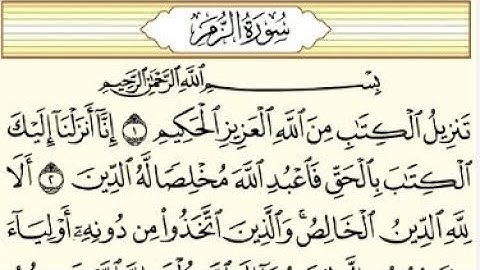 سُورَةُ الزُّمَرِ
بِسْمِ اللَّهِ الرَّحْمَٰنِ الرَّحِيمِ
تَنزِيلُ الْكِتَٰبِ مِنَ اللَّهِ الْعَزِيزِ الْحَكِيمِ ١ إِنَّآ أَنزَلْنَآ إِلَيْكَ
الْكِتَٰبَ بِالْحَقِّ فَاعْبُدِ اللَّهَ مُخْلِصًا لَّهُ الدِّينَ ٢ أَلَا
لِلَّهِ الدِّينُ الْخَالِصُ ۚ وَالَّذِينَ اتَّخَذُوا۟ مِن دُونِهِۦٓ أَوْلِيَآءَ